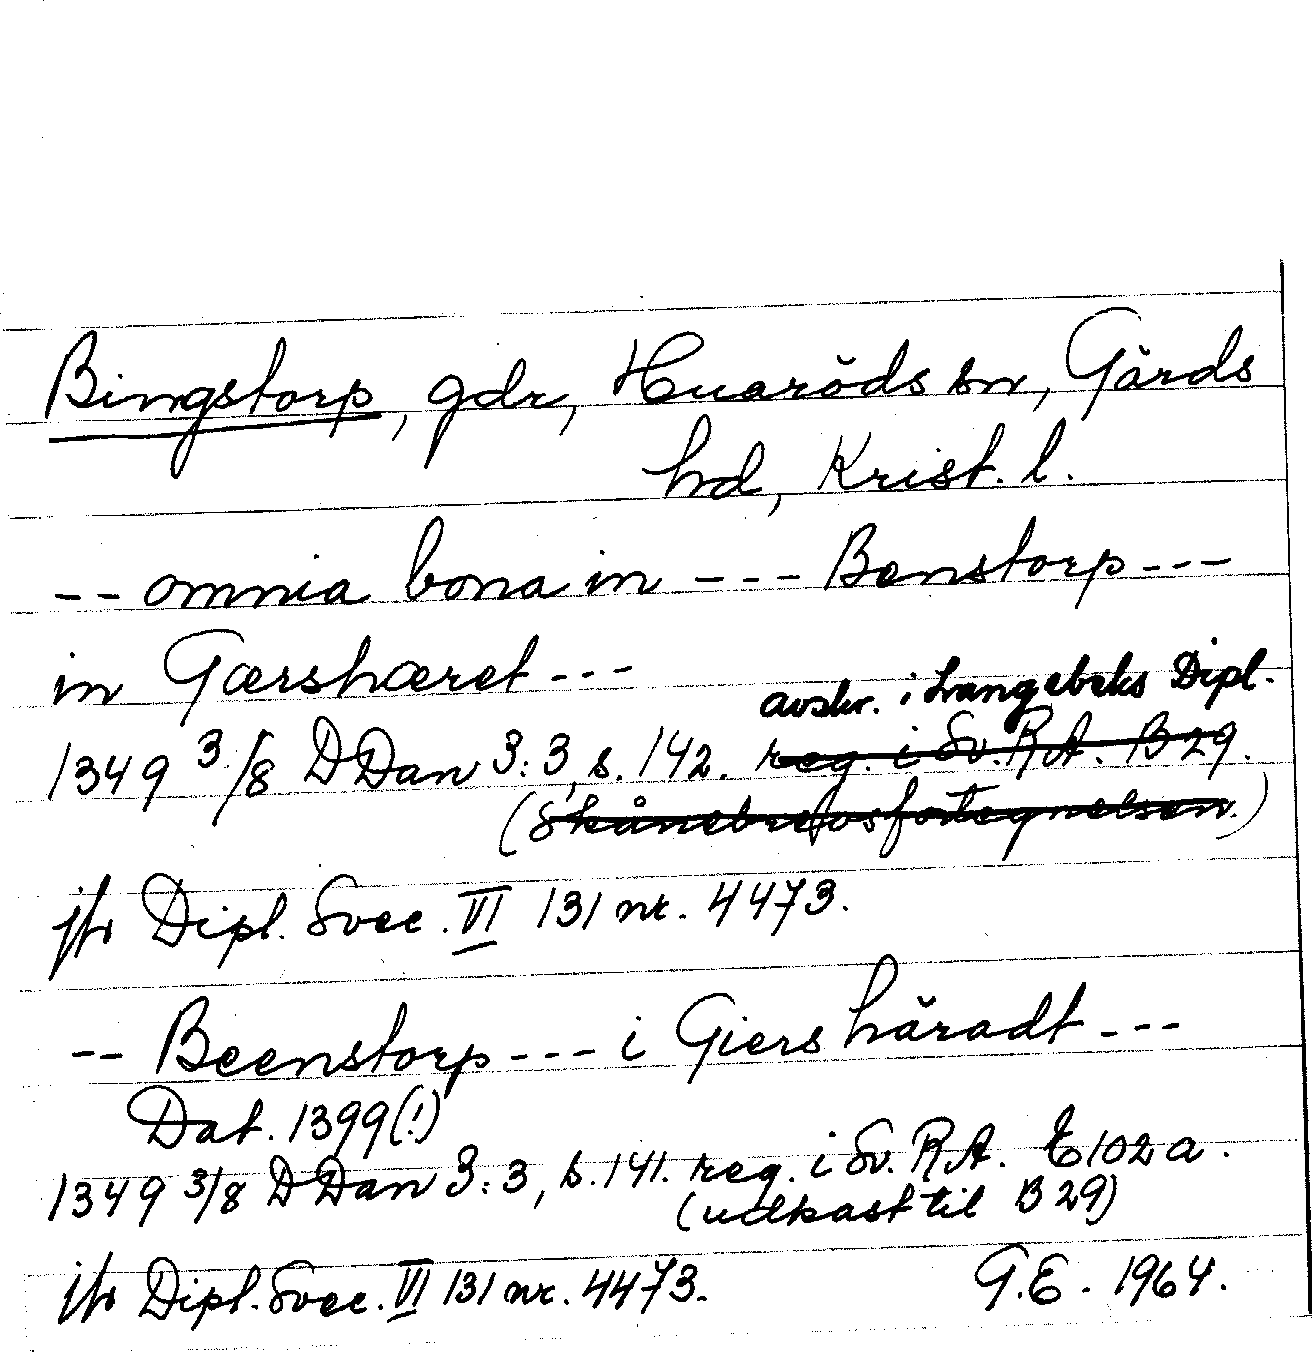 Bingstorp, gdr, Huaröds sn, Gärds
hd, Krist. l.
-- omnia bona in --- Benstorp ---
in Gærshæret ---
avskr. i Langebeks Dipl.
1349 3/8 DDan 3:3, s. 142. reg. i Sv. RA. B 29.
(Skånebrefvosfortegnelsen.)
jfr Dipl. Svec. VI 131 nr. 4473.
-- Beenstorp --- i Giers häradt ---
Dat. 1399(!)
1349 3/8 DDan 3:3, s. 141. reg. i Sv. RA. E 102 a.
(udkast til B 29)
jfr Dipl. Svec. VI 131 nr. 4473.
G.E. 1964.